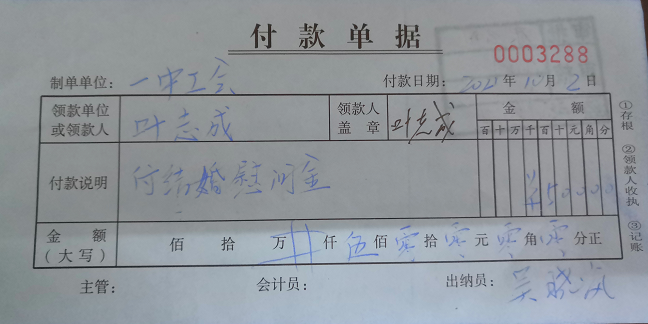 付款单据
0003288
制单单位：一中工会 付款日期：2021年10月2日
领款单位或领款人 叶志成 领款人盖章 叶志成 金额
百十万千百十元角分
付款说明 付结婚慰问金 ¥50000
金额（大写） 佰拾万仟伍佰零拾零元零角零分正
主管： 会计员： 出纳员：吴晓
①存根 ②领款人收执 ③记账